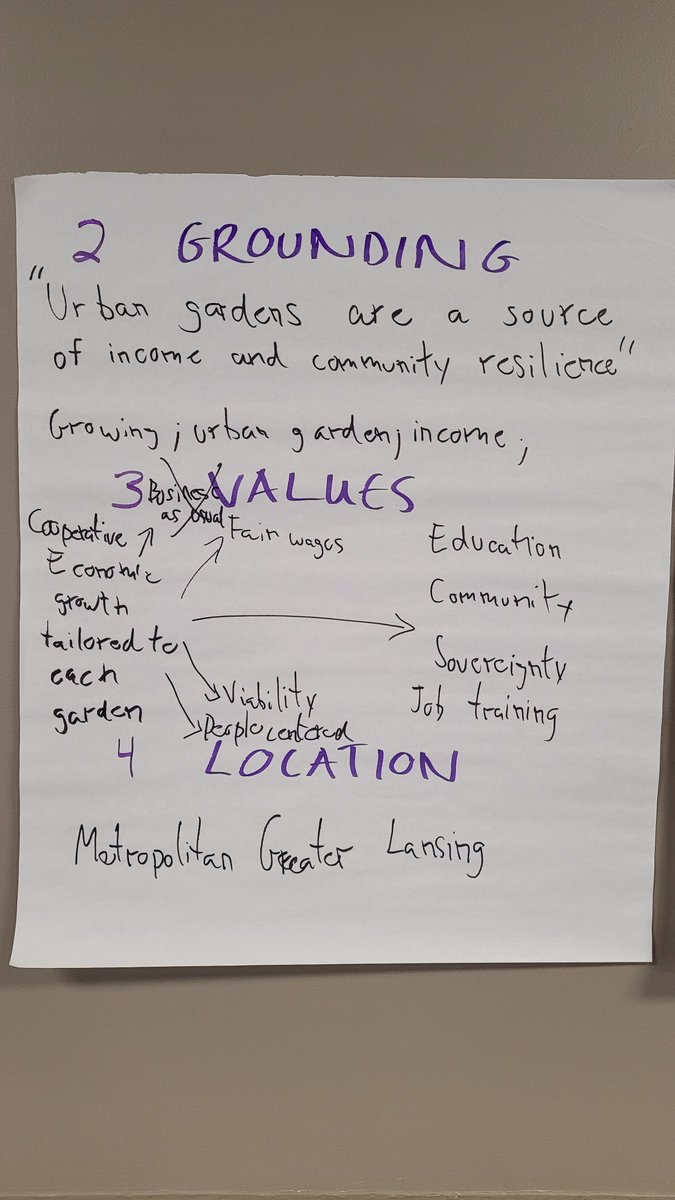 2 GROUNDING
"Urban gardens are a source
of income and community resilience"
Growing ; urban garden; income;
3 VALUES
Business
as usual
Cooperative
Economic
growth
tailored to
each
garden
Fair wages
Viability
People centered
Education
Community
Sovereignty
Job training
4 LOCATION
Metropolitan Greater Lansing